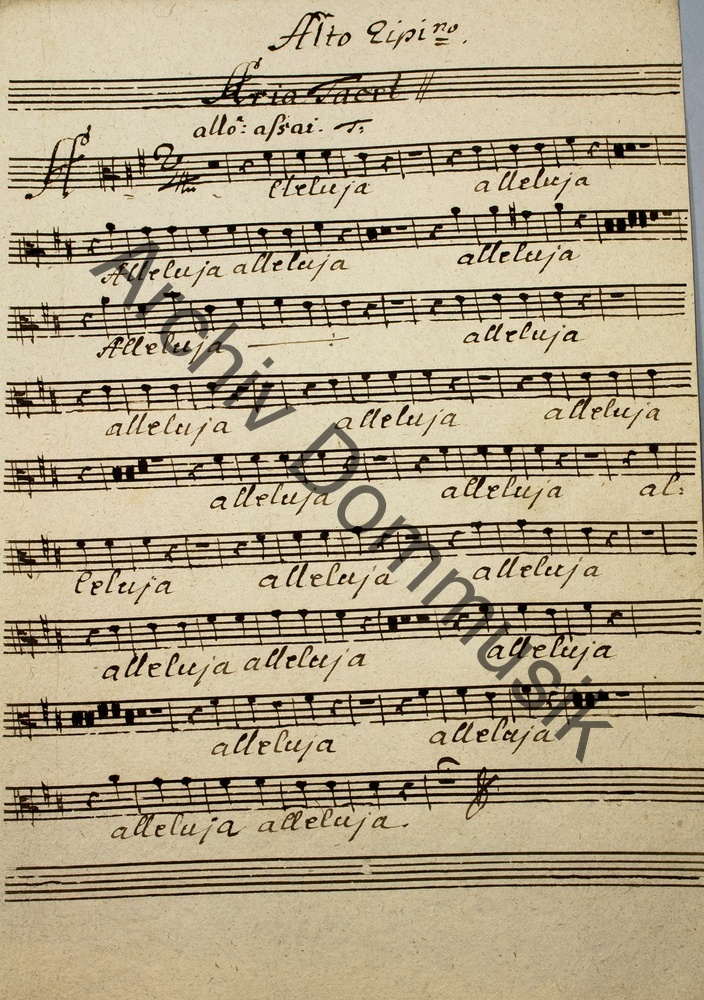 Alto Ripi no.
Aria Tacet
allo: assai. T:
lleluja alleluja
Alleluja alleluja alleluja
Alleluja alleluja
alleluja alleluja alleluja
alleluja alleluja al:
leluja alleluja alleluja
alleluja alleluja alleluja
alleluja alleluja
alleluja alleluja.
Archiv Dommusik